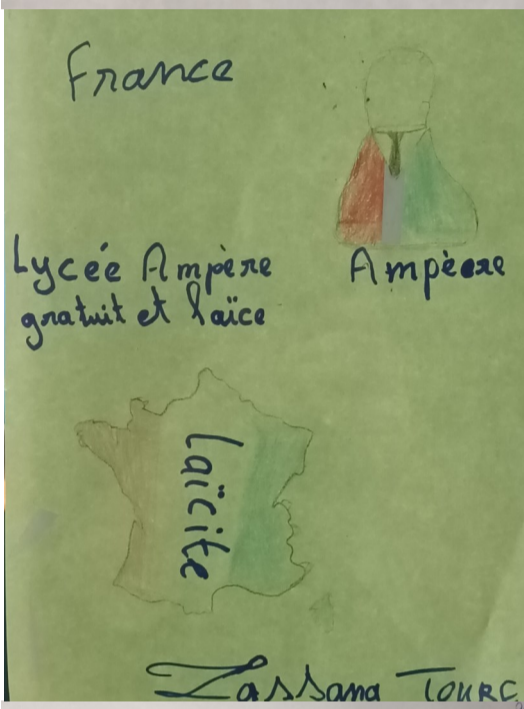 France
Lycée Ampère
gratuit et laïce
Ampèere
Laïcite
Lassana TOURC